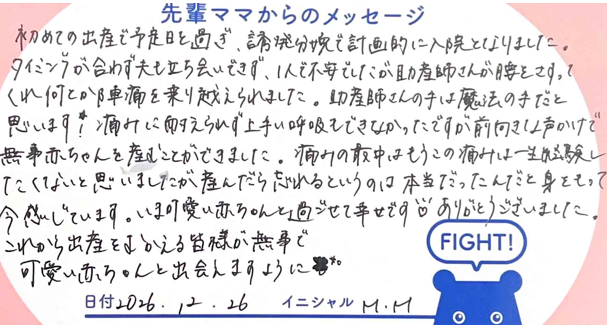 先輩ママからのメッセージ
初めての出産で予定日を過ぎ、誘発分娩で計画的に入院となりました。
タイミングが合わず夫も立ち会いできず、1人で不安でしたが助産師さんが腰をさすって
くれ何とか陣痛を乗り越えられました。助産師さんの手は魔法の手だと
思います! 痛みに耐えられず上手い呼吸もできなかったですが前向きな声かけで
無事赤ちゃんを産むことができました。痛みの最中はもうこの痛みは一生経験し
たくないと思いましたが産んだら忘れるというのは本当だったんだと身をもって
今感じています。いま可愛い赤ちゃんと過ごせて幸せです ありがとうございました。
これから出産をむかえる皆様が無事で
可愛い赤ちゃんと出会えますように
FIGHT!
日付 2026.12.26 イニシャル M.M